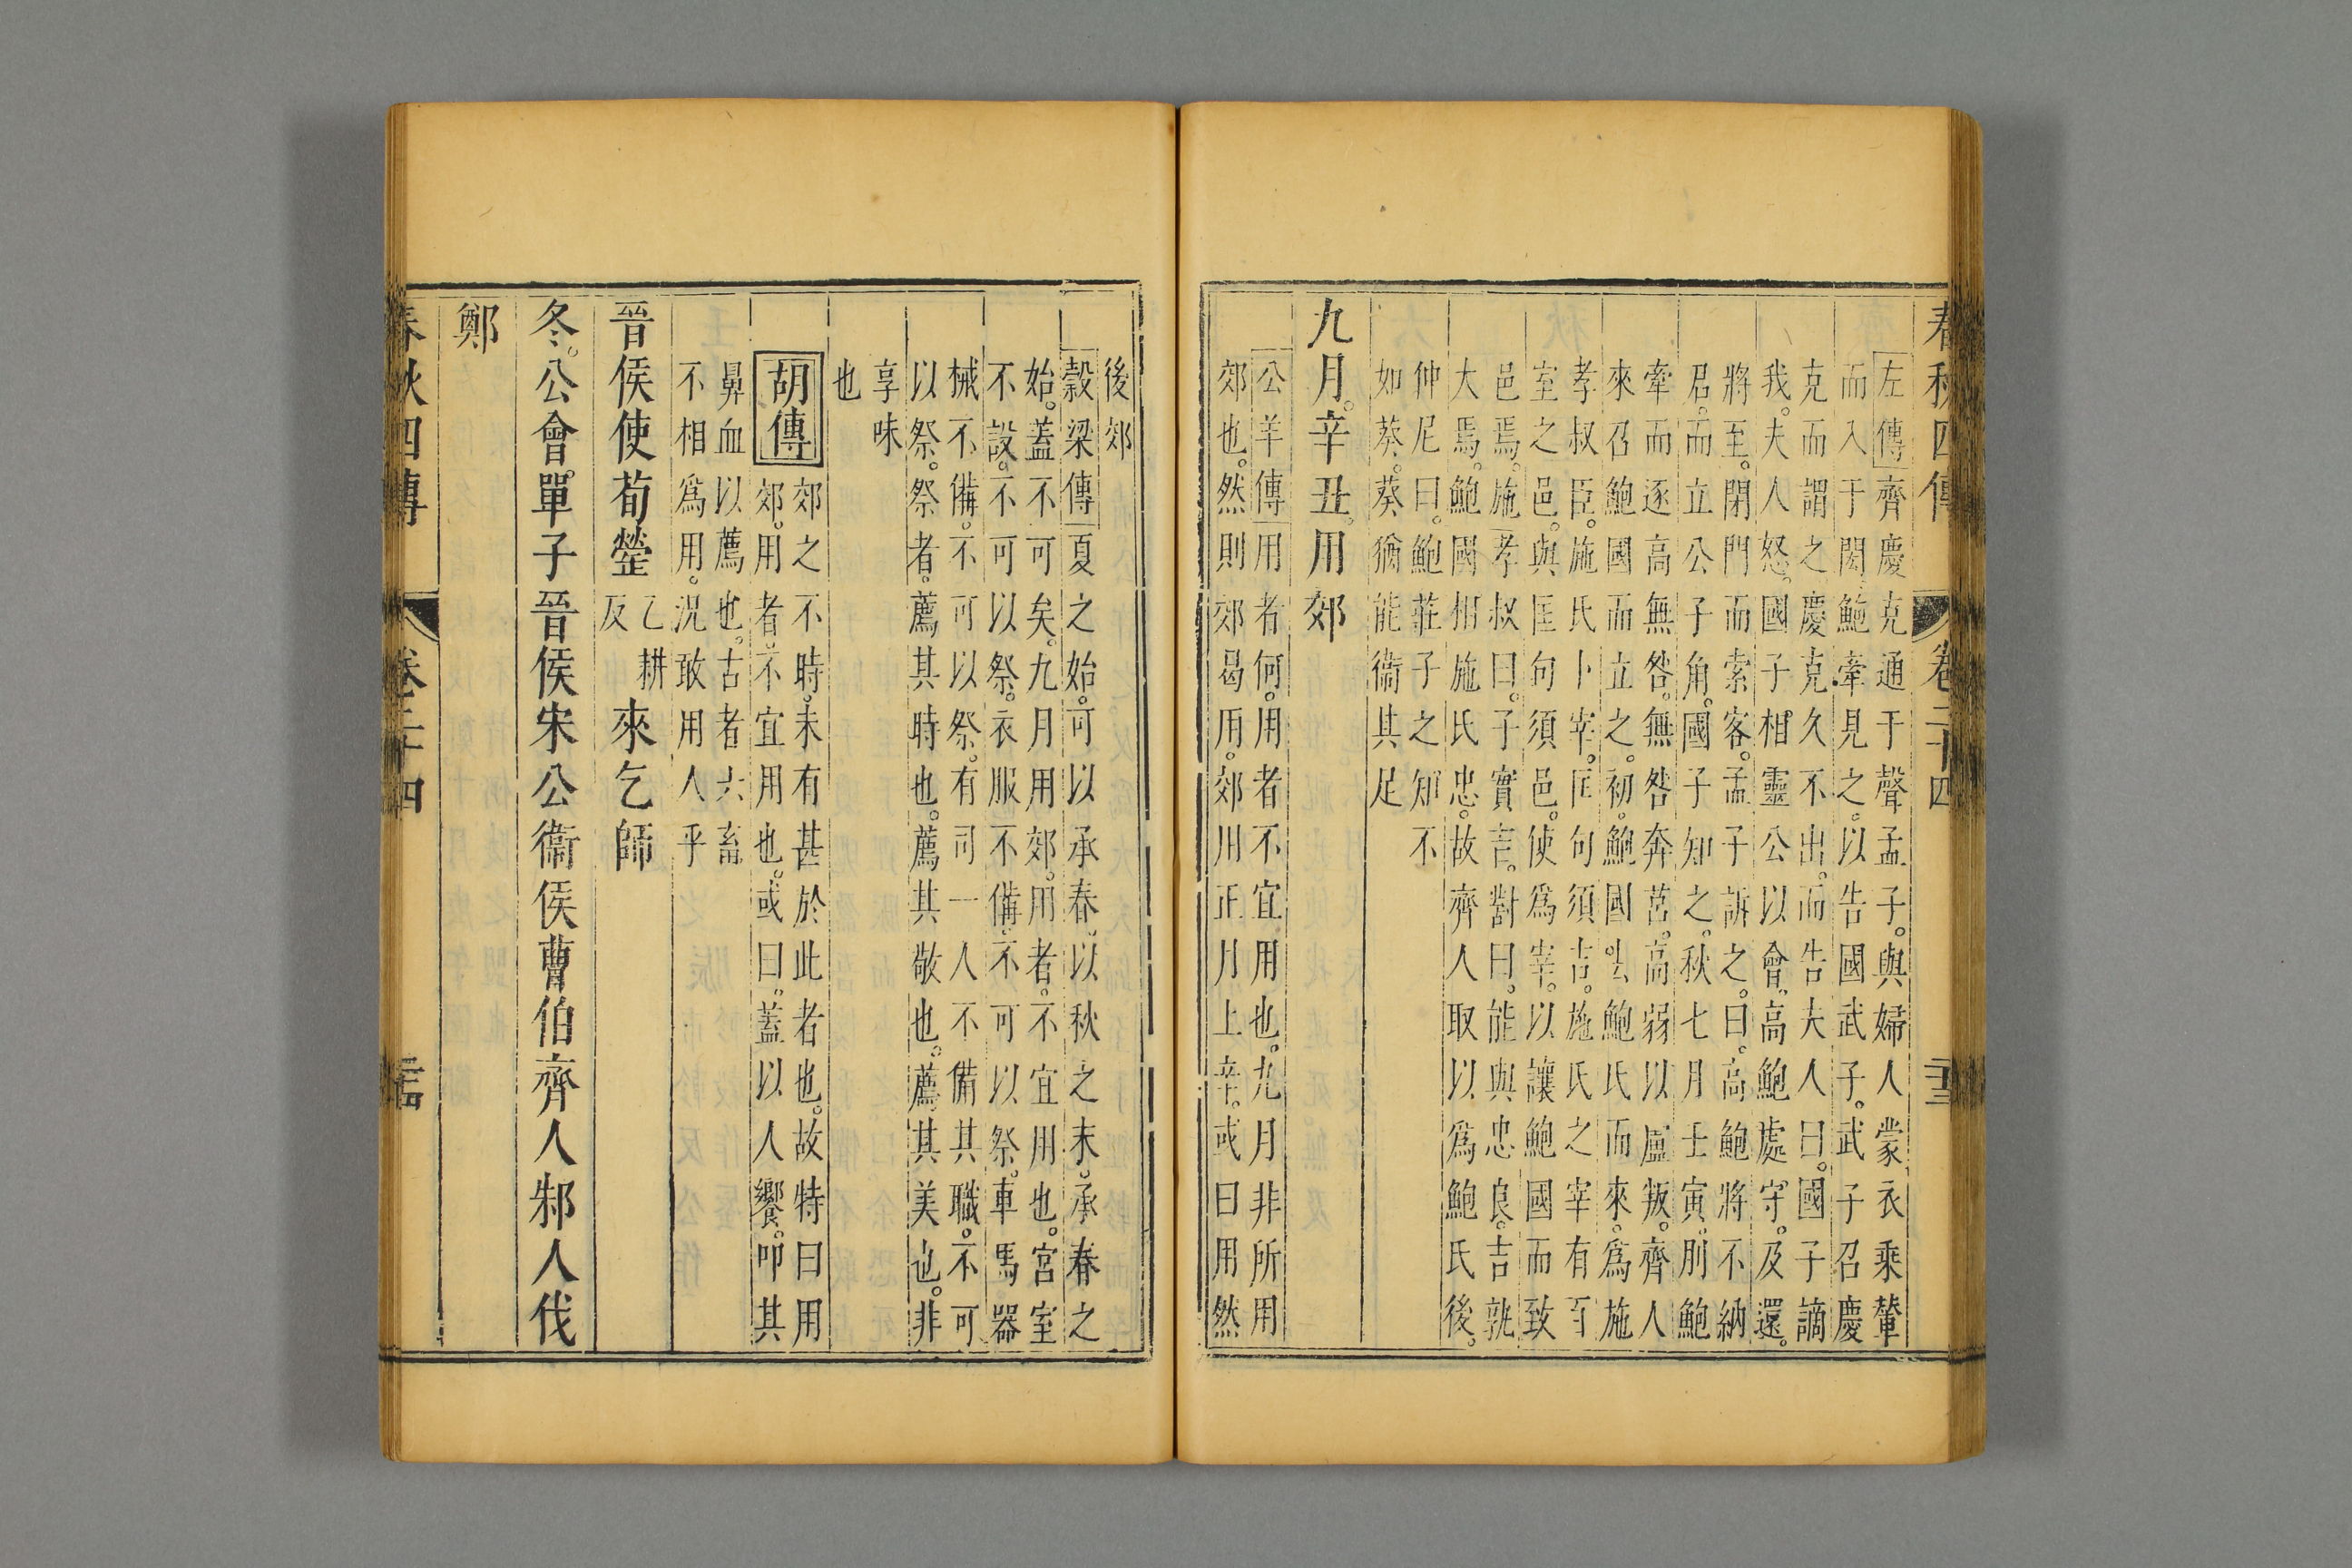 春秋四傳 卷二十四 二十三
左傳齊慶克通于聲孟子。與婦人蒙衣乘輦
而入于閎。鮑牽見之。以告國武子。武子召慶
克而謂之。慶克久不出。而告夫人曰。國子謫
我。夫人怒。國子相靈公以會。高鮑處守。及還。
將至。閉門而索客。孟子訴之。曰。高鮑將不納
君。而立公子角。國子知之。秋七月壬寅。刖鮑
牽而逐高無咎。無咎奔莒。高弱以盧叛。齊人
來召鮑國而立之。初。鮑國去鮑氏而來。爲施
孝叔臣。施氏卜宰。匡句須吉。施氏之宰有百
室之邑。與匡句須邑。使爲宰。以讓鮑國而致
邑焉。施孝叔曰。子實吉。對曰。能與忠良。吉孰
大焉。鮑國相施氏忠。故齊人取以爲鮑氏後。
仲尼曰。鮑莊子之知不
如葵。葵猶能衞其足
九月。辛丑。用郊
公羊傳用者何。用者不宜用也。九月非所用
郊也。然則郊曷用。郊用正月上辛。或曰用然
後郊
穀梁傳夏之始。可以承春。以秋之末。承春之
始。蓋不可矣。九月用郊。用者。不宜用也。宮室
不設。不可以祭。衣服不備。不可以祭。車馬器
械不備。不可以祭。有司一人不備其職。不可
以祭。祭者。薦其時也。薦其敬也。薦其美也。非
享味
也
胡傳
郊之不時。未有甚於此者也。故特曰用
郊。用者。不宜用也。或曰。蓋以人饗。叩其
鼻血以薦也。古者六畜
不相爲用。況敢用人乎
晉侯使荀罃乙耕反來乞師
冬。公會。單子晉侯宋公衞侯曹伯齊人邾人伐
鄭
春秋四傳 卷二十四 二十四